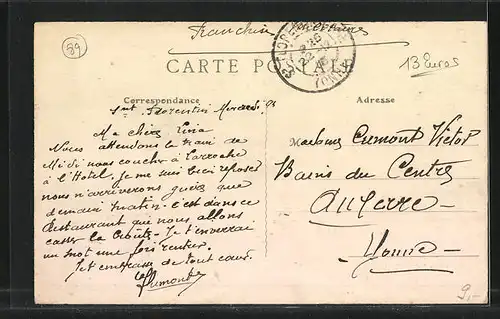 89
Franchise
13 Euros
CARTE PO
YONNE
Correspondance
Adresse
St Florentin Mercredi
Ma chère Lina
Nous attendons le train de
Midi nous coucher à Laroche
à l'Hôtel. Je me suis bien reposée
nous n'arriverons guère que
demain matin. C'est dans ce
Restaurant que nous allons
casser la Croûte. Je t'enverrai
un mot une fois rentrer.
Je t'embrasse de tout cœur.
Madame Cumont Victor
Bains du Centre
Auxerre
Yonne
9,-